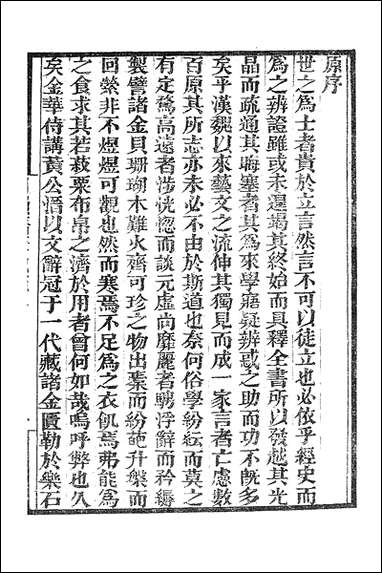 原序
世之為士者貴於立言然言不可以徒立也必依乎經史而
為之辨證雖或未遑竭其終始而具釋全書所以發越其光
晶而疏通其晦塞者其為來學寤疑辨惑之助而功不旣多
矣乎漢魏以來藝文之流伸其獨見而成一家言者亡慮數
百原其所志亦未必不由於斯道也奈何俗學紛紜而莫之
有定騖高遠者涉恍惚而談元虛尚靡麗者騁浮辭而矜縟
製譬諸金貝珊瑚木難火齊可珍之物出櫜而紛葩升槃而
回縈非不煜煜可觀也然而寒焉不足為之衣飢焉弗能為
之食求其若菽粟布帛之濟於用者曾何如哉嗚呼弊也久
矣金華侍講黃公溍以文辭冠于一代藏諸金匱勒於樂石